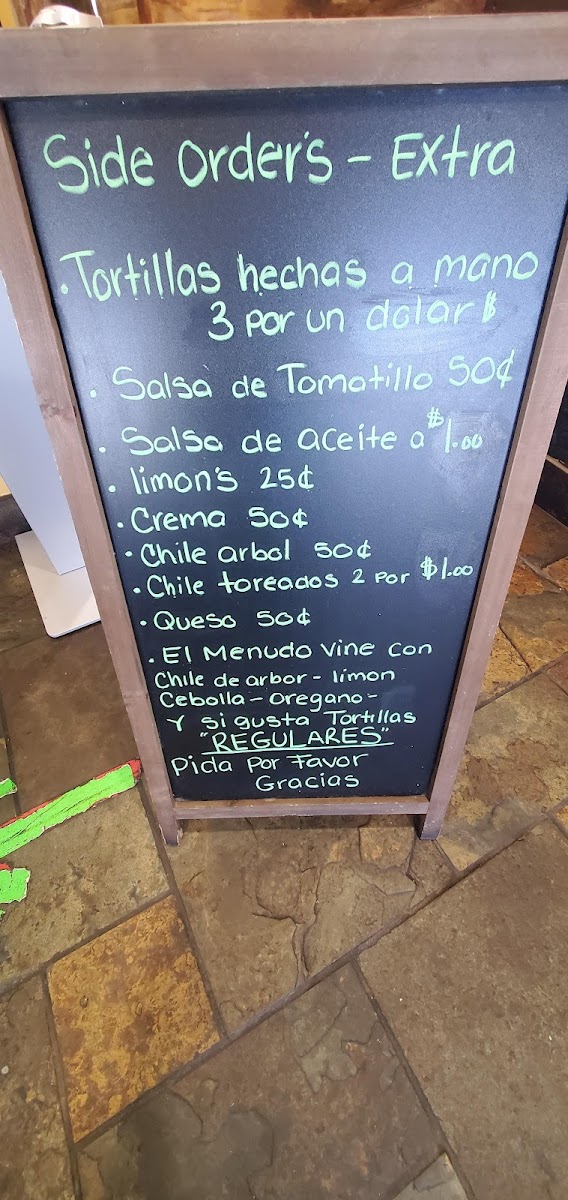 Side Order's - Extra
• Tortillas hechas a mano
3 por un dolar $
• Salsa de Tomatillo 50¢
• Salsa de aceite a $1.00
• limon's 25¢
• Crema 50¢
• Chile arbol 50¢
• Chile toreados 2 por $1.00
• Queso 50¢
• El Menudo Vine con
Chile de arbor - limon
Cebolla - oregano -
Y si gusta Tortillas
"REGULARES"
Pida Por Favor
Gracias